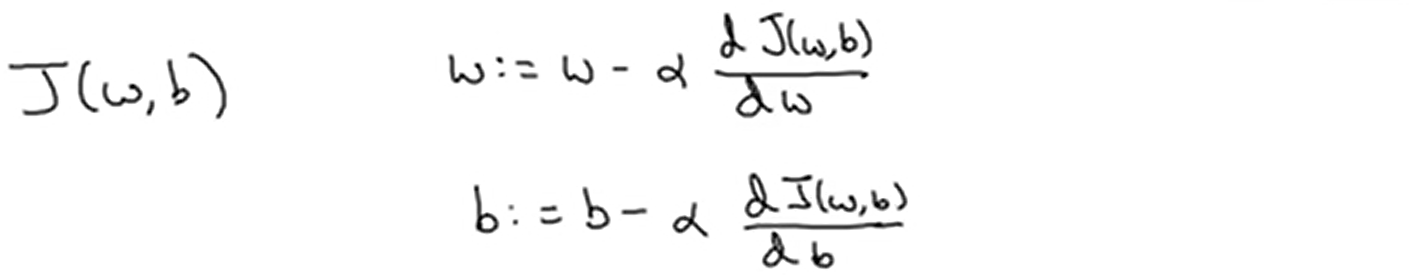 J(w,b) w := w - α dJ(w,b)/dw
b := b - α dJ(w,b)/db